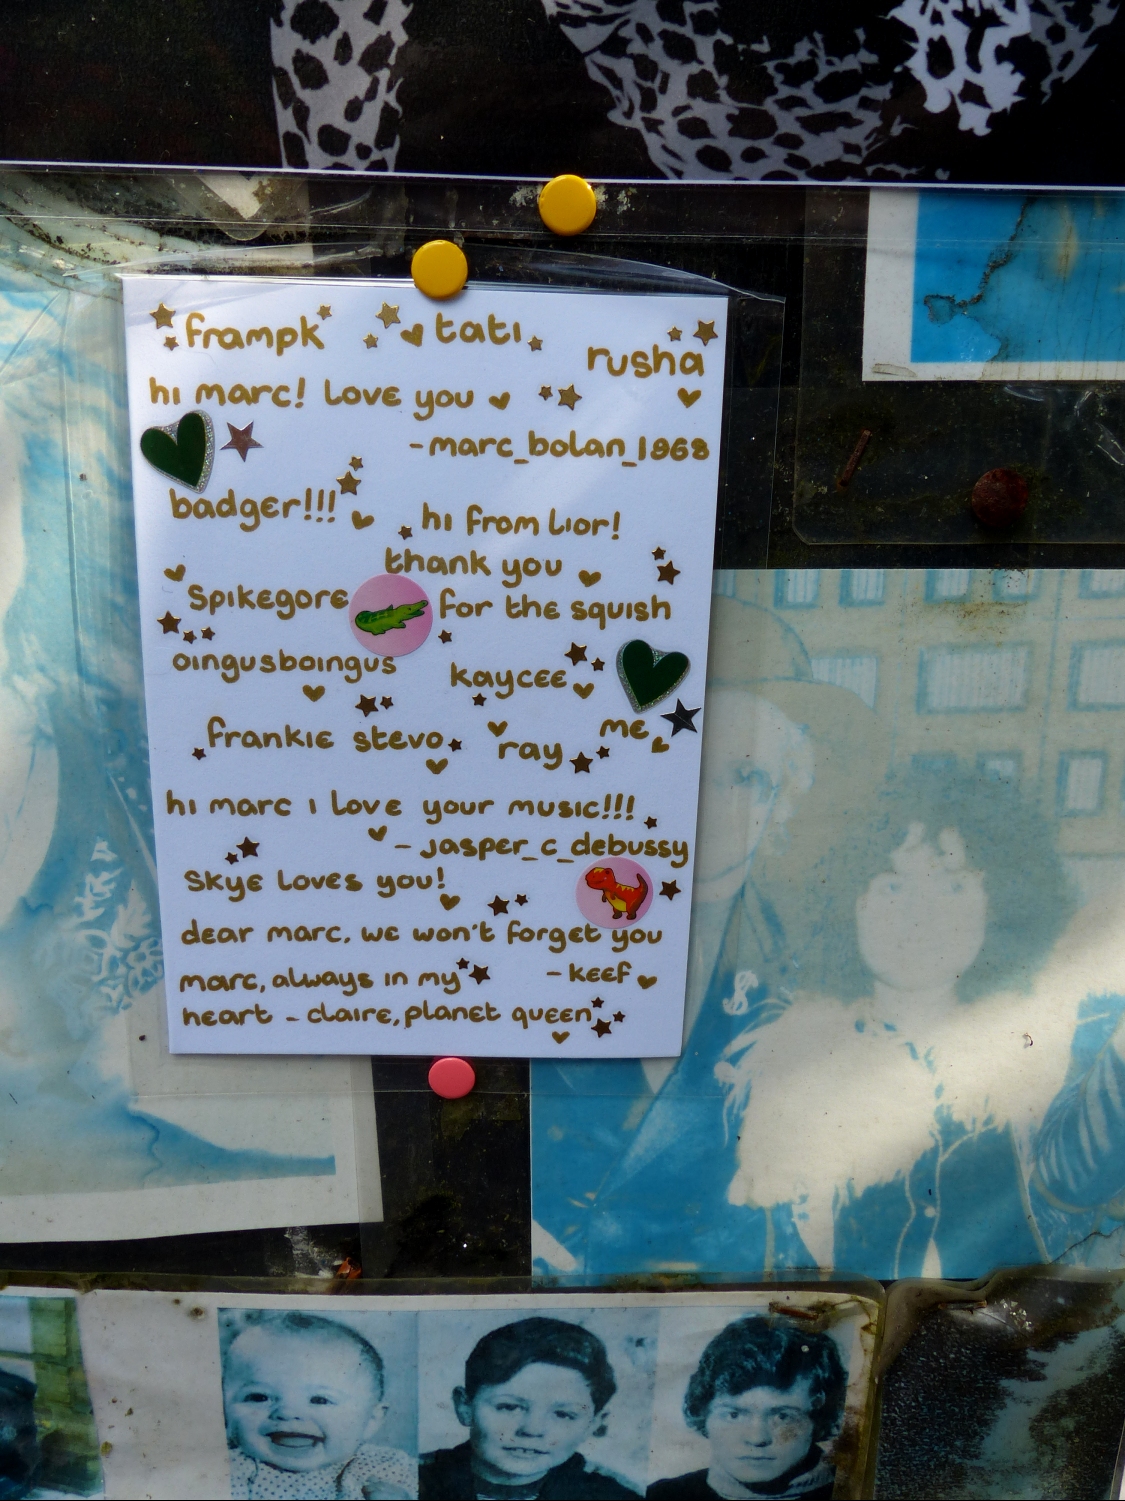 frampk tati
rusha
hi marc! Love you
-marc_bolan_1968
badger!!!
hi from Lior!
thank you
Spikegore for the squish
oingusboingus
kaycee
me
frankie stevo
ray
hi marc i love your music!!!
- jasper_c_debussy
Skye Loves you!
dear marc. we won't forget you
- keef
marc, always in my
heart - claire, planet queen